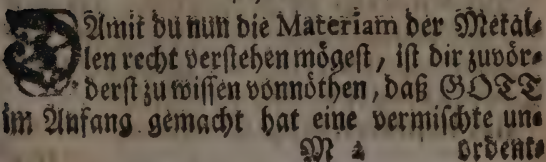 DAmit du nun die Materiam der Metal⸗
len recht verstehen mögest, ist dir zuvör⸗
derst zu wissen vonnöthen, daß GOTT
im Anfang gemacht hat eine vermischte un⸗
M 2 ordent⸗